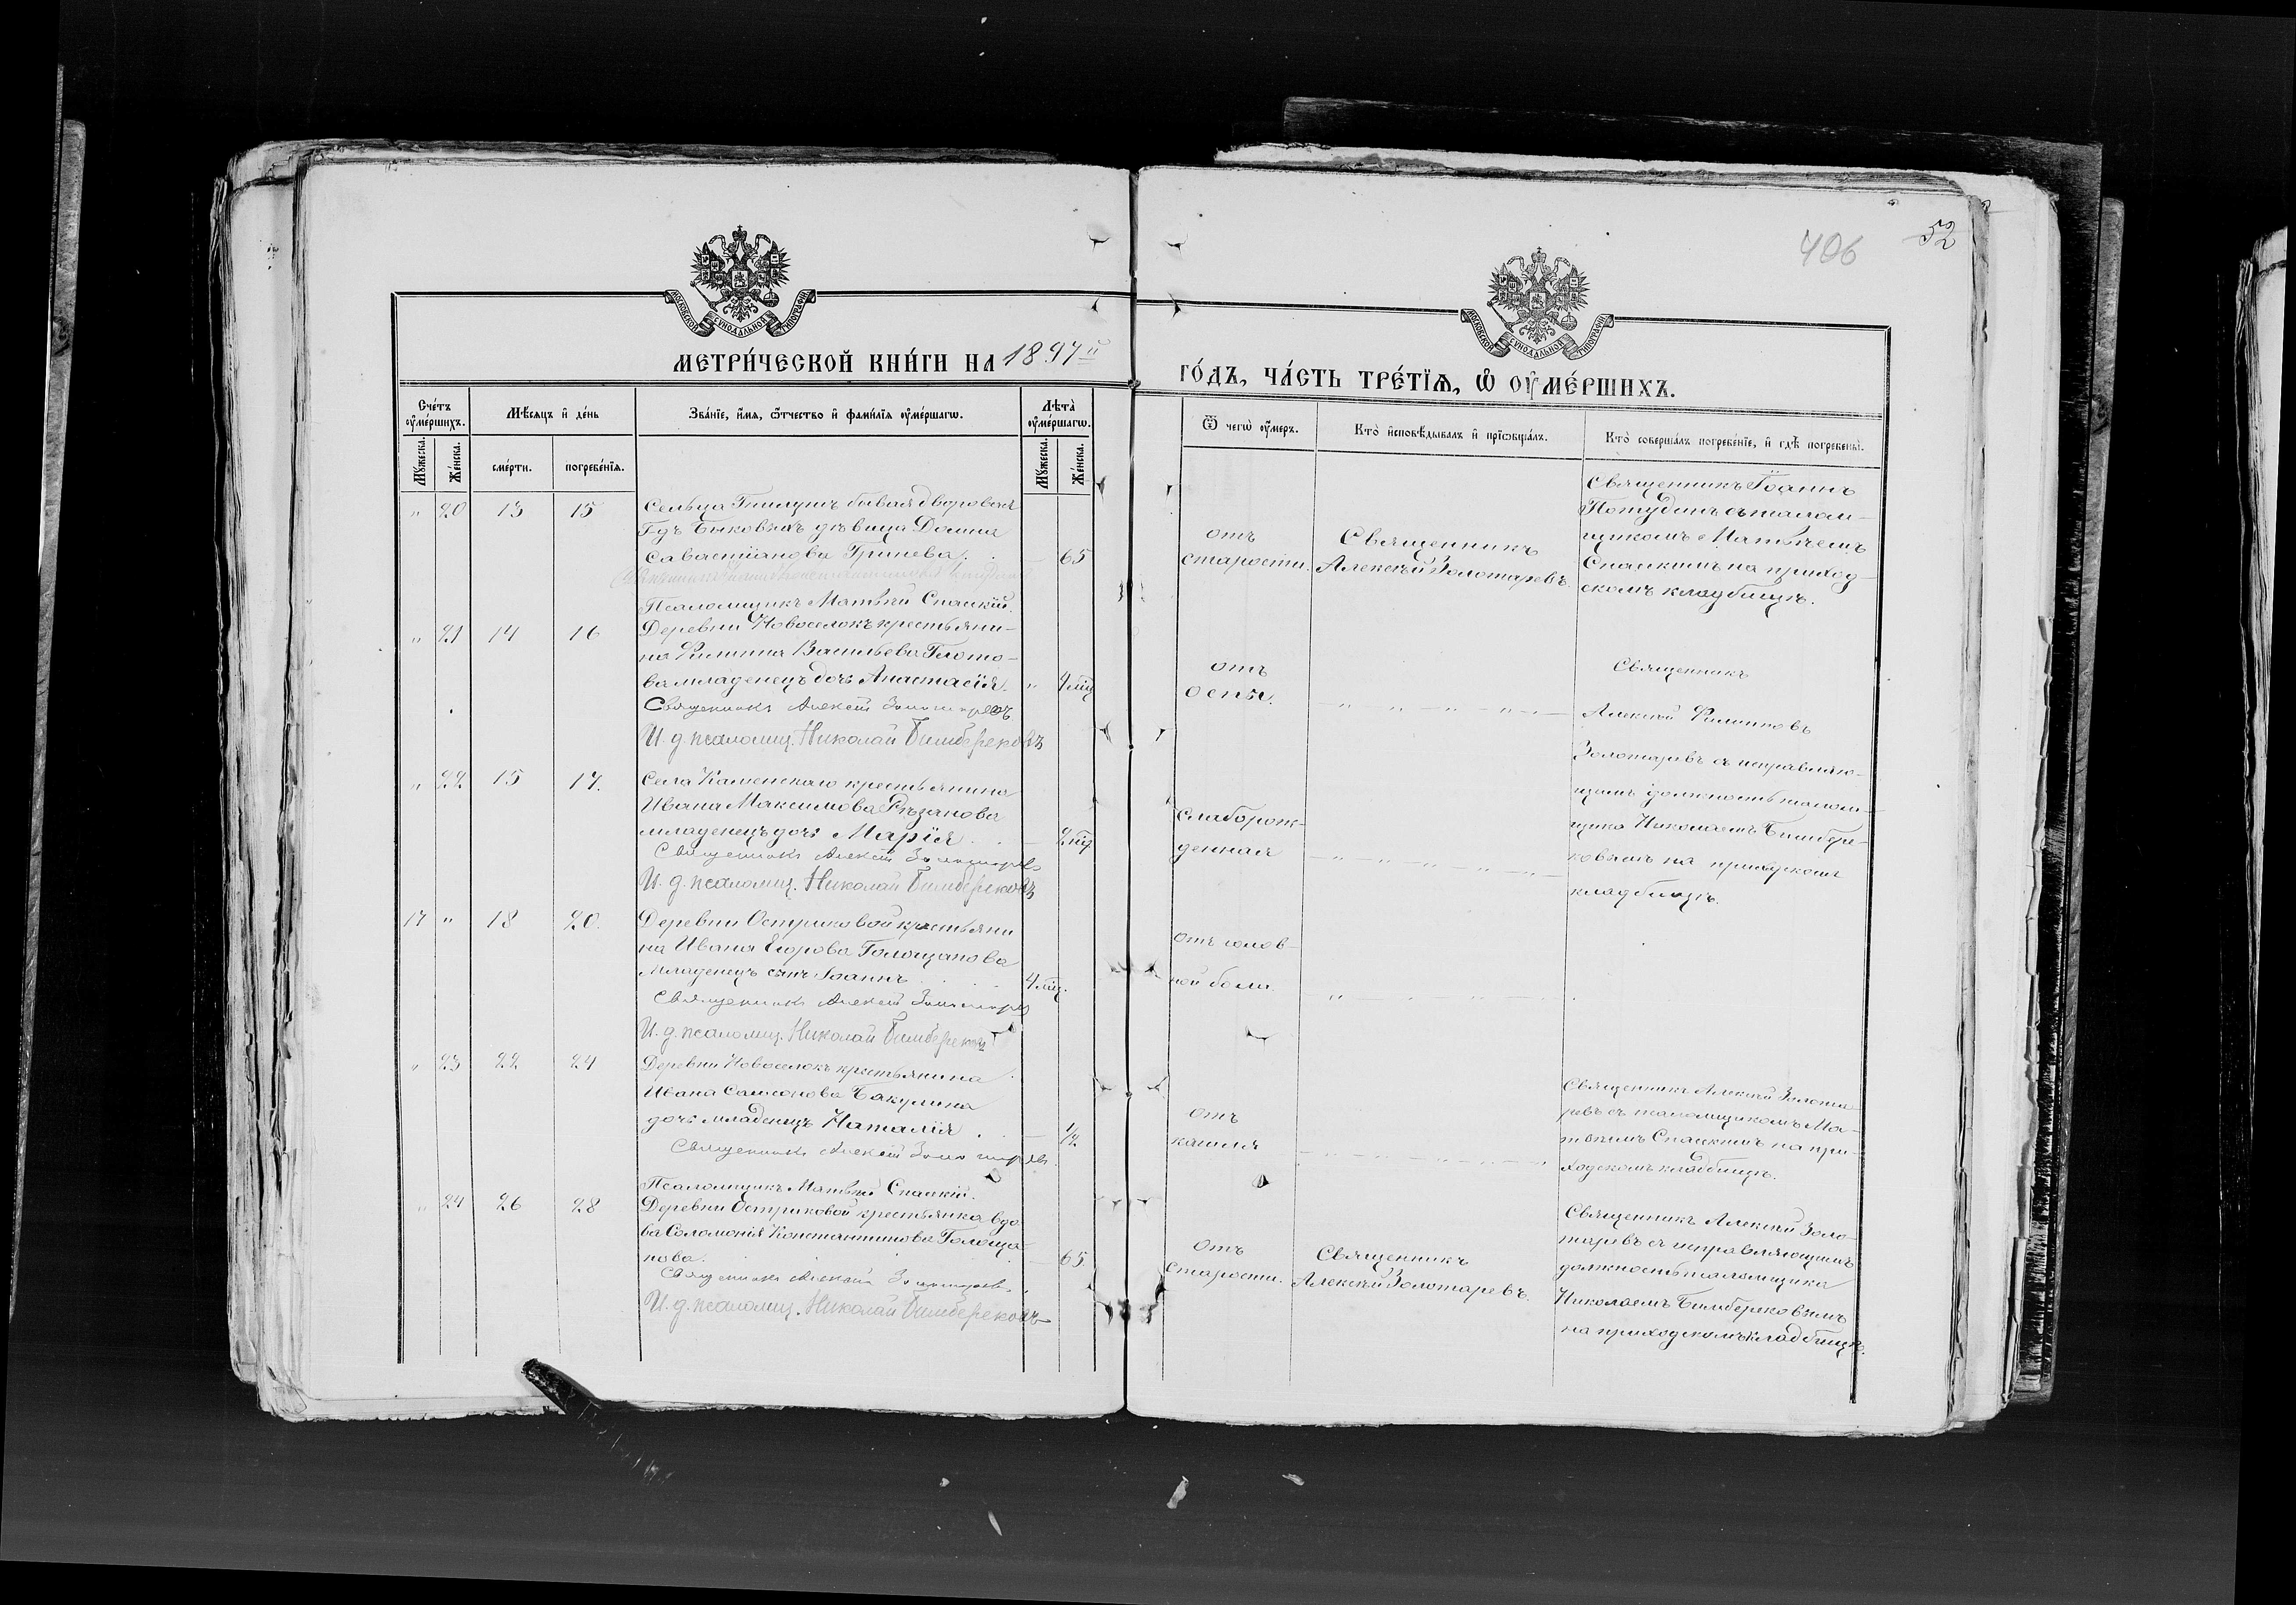 406
52
МОСКОВСКОЙ СѴНОДАЛЬНОЙ ТИПОГРАФІИ
МОСКОВСКОЙ СѴНОДАЛЬНОЙ ТИПОГРАФІИ
МЕТРИ́ЧЕСКОЙ КНИ́ГИ НА 1897й ГО́ДЪ, ЧА́СТЬ ТРЕ́ТІѦ, Ѡ ОУ҆МЕ́РШИХЪ.
Сче́тъ оу҆ме́ршихъ.
Мѣ́сяцъ и҆ де́нь
Зва́нїе, и҆́мя, ѻ҆́тчество и҆ фами́лїя оу҆ме́ршагѡ.
Лѣта̀ оу҆ме́ршагѡ.
Ѿ чегѡ̀ оу҆́меръ.
Кто̀ и҆сповѣ́дывалъ и҆ прїѡбща́лъ.
Кто̀ соверша́лъ погребе́нїе, и҆ гдѣ̀ погребены̀.
Мꙋ́жеска.
Же́нска.
сме́рти.
погребе́нїя.
Мꙋ́жеска.
Же́нска.
" 20 13 15
Сельца бывая дворовая
Г-дъ Быковыхъ дѣвица Домна
Савастіанова Гринева. 65
Псаломщикъ Матвѣй Спасскій.
отъ
старости.
Священникъ
Алексѣй Золотаревъ.
Священникъ Іоаннъ
съ псалом-
щикомъ Матвѣемъ
Спасскимъ на приход-
скомъ кладбищѣ.
" 21 14 16
Деревни Новоселокъ крестьяни-
на Филиппа Васильева Глото-
ва младенецъ дочь Анастасія. " 4 мц
Священникъ Алексѣй Золотаревъ
И. д. псаломщ. Николай Бимберековъ
отъ
оспы.
Священникъ
Алексѣй Филипповъ
Золотаревъ съ исправляю-
щимъ должность псалом-
щика Николаемъ Бимбере-
ковымъ на приходскомъ
кладбищѣ.
" 22 15 17.
Села Каменскаго крестьянина
Ивана Максимова Рѣзанова
младенецъ дочь Марія. 2 мц
Священникъ Алексѣй Золотаревъ
И. д. псаломщ. Николай Бимберековъ
Слаборож-
денная
17 " 18 20.
Деревни Остриковой крестьяни
на Ивана Егорова Голощапова
Младенецъ сынъ Іоаннъ 4 мц.
Священникъ Алексѣй Золотарев
И. д. псаломщ. Николай Бимберековъ
отъ голов-
ной боли
" 23 22 24
Деревни Новоселокъ крестьянина
Ивана Самсонова Бакулина
дочь младенецъ Наталія. 1/2
Священникъ Алексѣй Золотаревъ.
Псаломщикъ Матвѣй Спасскій.
отъ
кашля
Священникъ Алексѣй Золота-
ревъ съ псаломщикомъ Ма-
твѣемъ Спасскимъ на при-
ходскомъ кладбищѣ.
" 24 26 28
Деревни Остриковой крестьянка вдо
ва Соломонія Константинова Голоща
пова. 65
Священникъ Алексѣй Золотаревъ.
И. д. псаломщ. Николай Бимберековъ
отъ
старости.
Священникъ
Алексѣй Золотаревъ.
Священникъ Алексѣй Золо-
таревъ съ исправляющимъ
должность псаломщика
Николаемъ Бимберековымъ
на приходскомъ кладбищѣ.